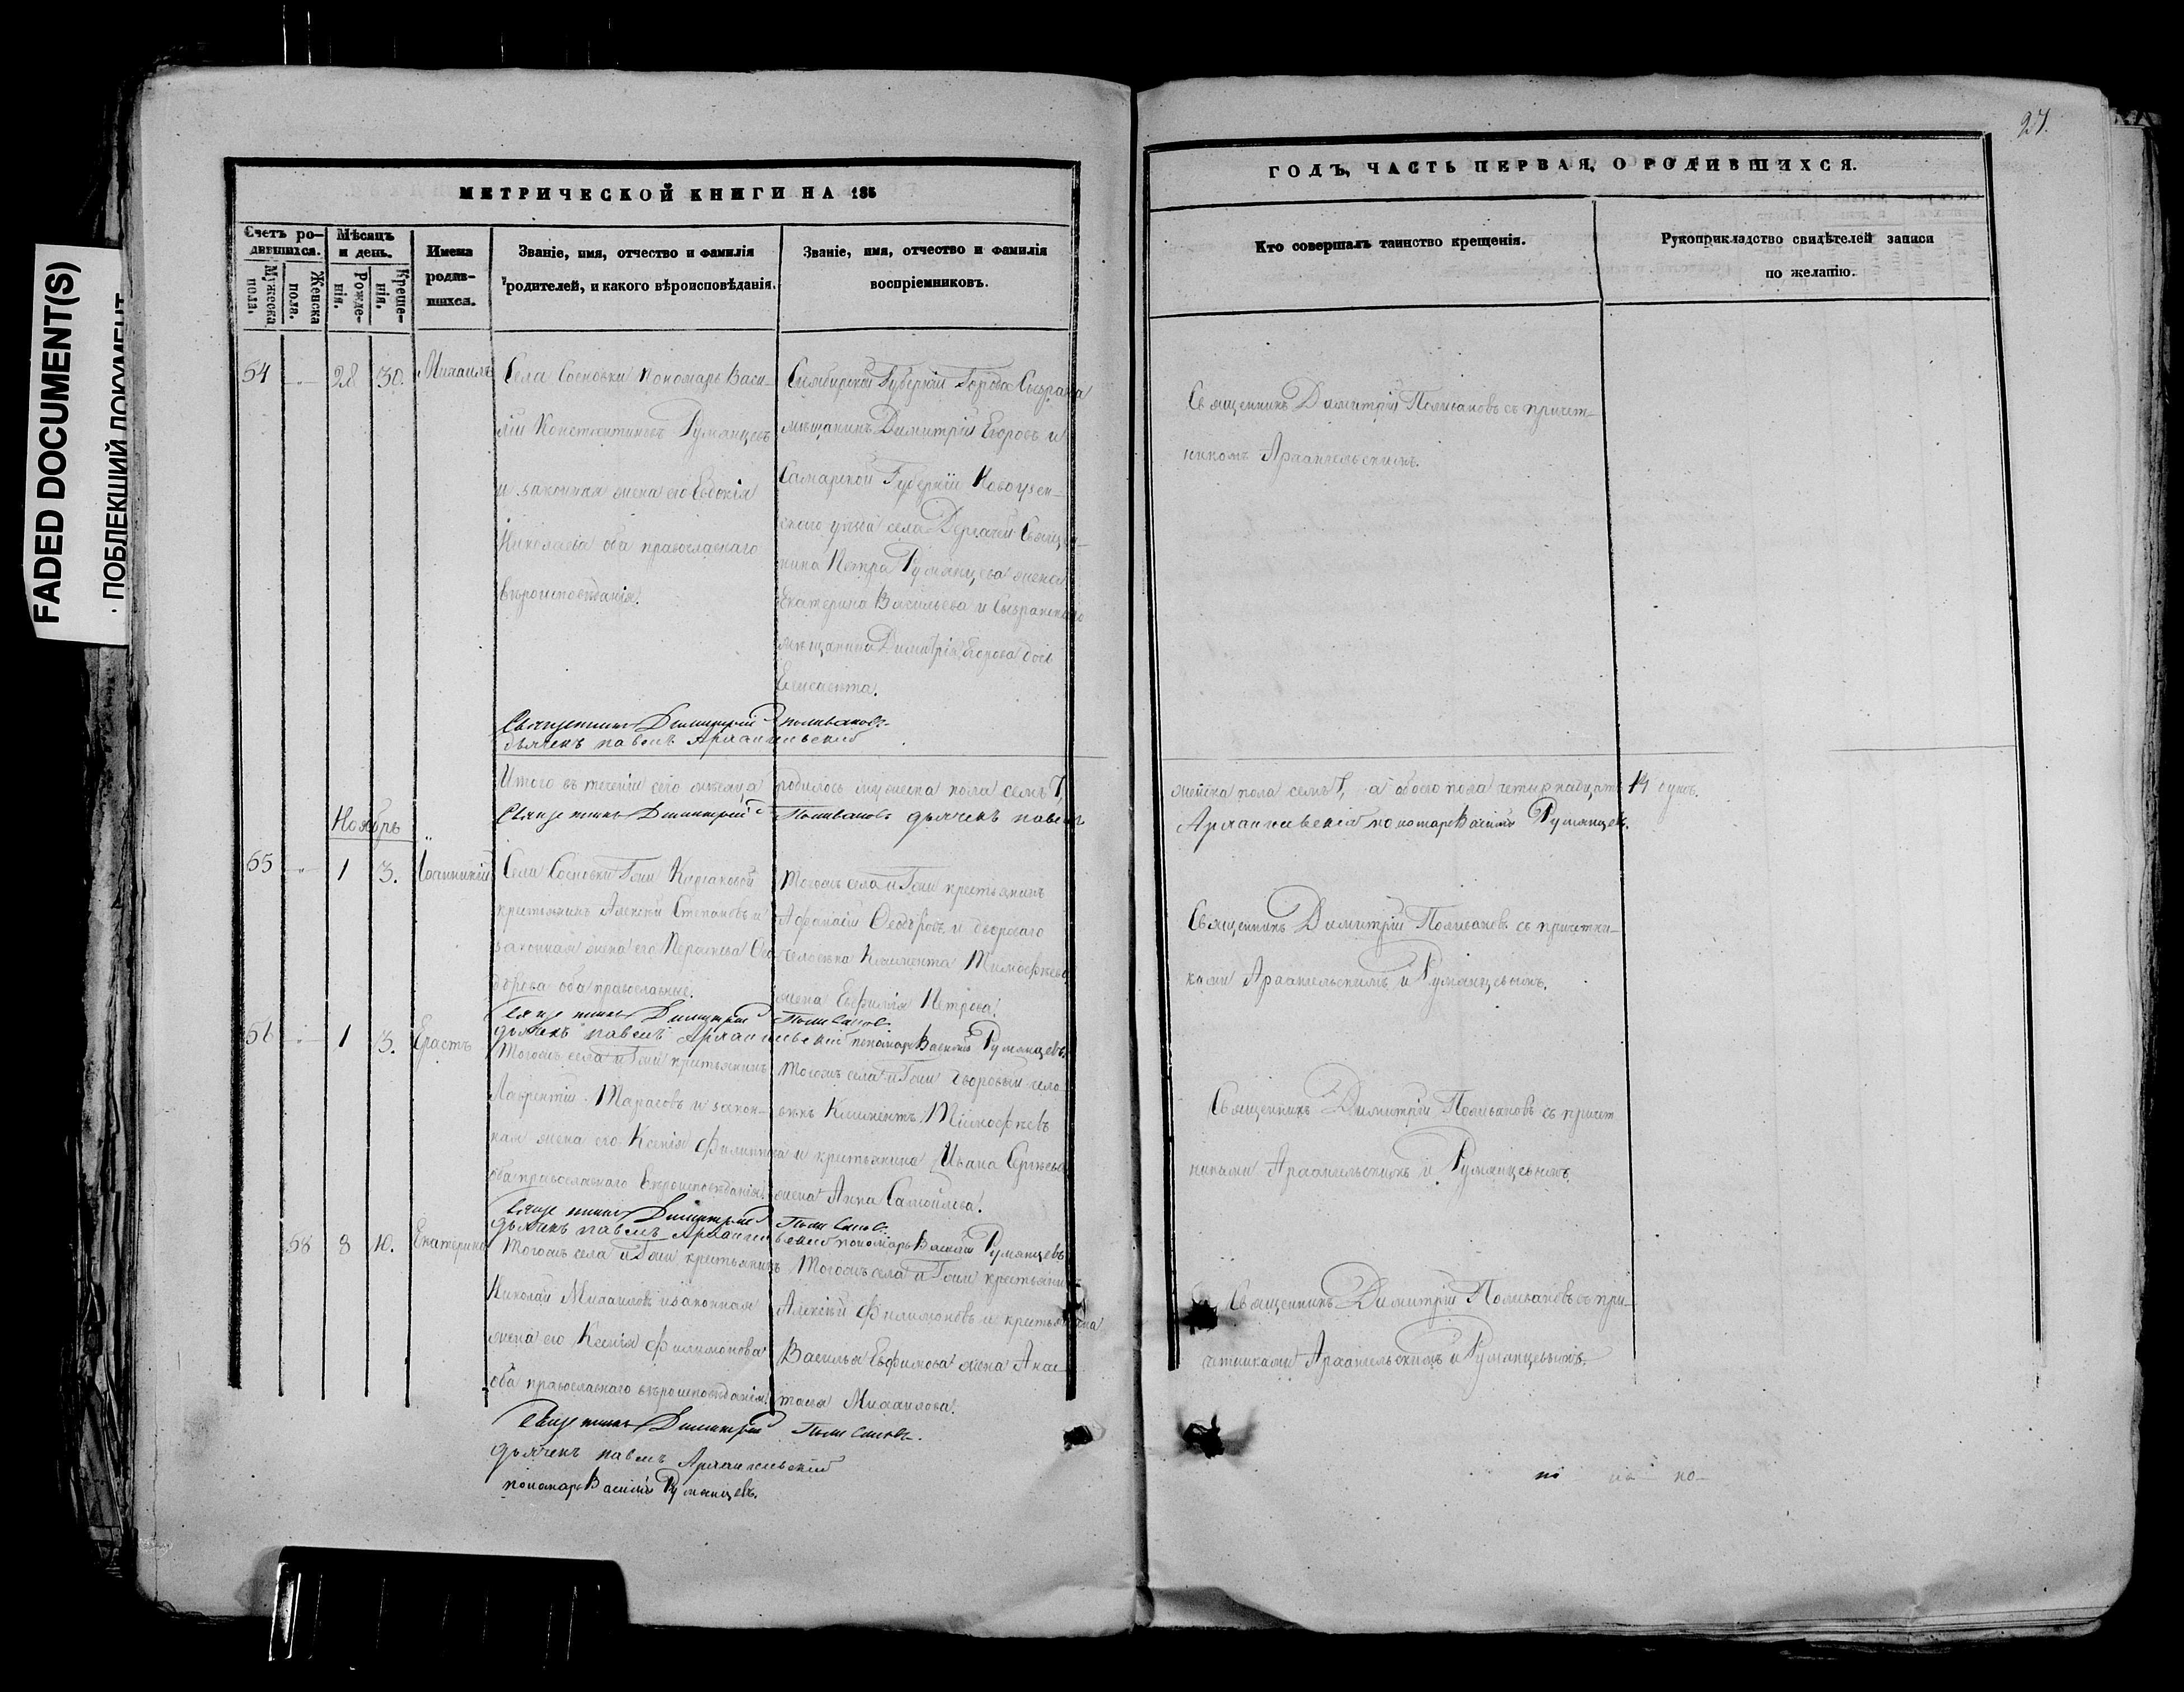 FADED DOCUMENT(S)
ПОБЛЕКШИЙ ДОКУМЕНТ
27.
МЕТРИЧЕСКОЙ КНИГИ НА 185
ГОДЪ, ЧАСТЬ ПЕРВАЯ, О РОДИВШИХСЯ.
Счетъ ро-
дившихся.
Мужеска
пола.
Женска
пола.
Мѣсяцъ
и день.
Рожде-
нія.
Креще-
нія.
Имена
родив-
шихся.
Званіе, имя, отчество и фамилія
родителей, и какого вѣроисповѣданія.
Званіе, имя, отчество и фамилія
воспріемниковъ.
Кто совершалъ таинство крещенія.
Рукоприкладство свидѣтелей записи
по желанію.
54
28
30.
Михаилъ
Села Сосновки Пономарь Васи-
лій Константиновъ Румянцевъ
и законная жена его Евдокія
Николаева оба православнаго
вѣроисповѣданія.
Симбирской Губерніи Города Сызрана
мѣщанинъ Димитрій Егоровъ и
Самарской Губерніи Новоузен-
скаго уѣзда села Дергачей Священ-
ника Петра Румянцева жена
Екатерина Васильева и Сызранскаго
мѣщанина Димитрія Егорова дочь
Елисавета.
Священникъ Димитрій Поливановъ съ причет-
никомъ Архангельскимъ.
Священникъ Димитрій Поливановъ
дьячекъ Павелъ Архангельскій
Итого въ теченіи сего мѣсяца родилось мужеска пола семь 7,
женска пола семь 7, а обоего пола четырнадцать 14 душъ.
Священникъ Димитрій Поливановъ дьячекъ Павелъ
Архангельскій пономарь Василій Румянцевъ.
Ноябрь
55
1
3.
Іоанникій
Села Сосновки Гжи
крестьянинъ Алексій Степановъ и
законная жена его Параскева Ѳео-
дорова оба православные.
Тогожъ села и Гжи крестьянинъ
Аѳанасій Ѳеодоровъ и двороваго
человѣка Климента Тимоѳѣева
жена Евфимія Петрова.
Священникъ Димитрій Поливановъ съ причетни-
ками Архангельскимъ и Румянцевымъ.
Священникъ Димитрій Поливановъ
дьячекъ Павелъ Архангельскій пономарь Василій Румянцевъ
56
1
3.
Ерастъ
Тогожъ села и Гжи крестьянинъ
Лаврентій Тарасовъ и закон-
ная жена его Ксенія Филиппова
оба православнаго вѣроисповѣданія.
Тогожъ села и Гжи дворовый чело-
вѣкъ Климентъ Тимоѳѣевъ
и крестьянина Ивана Сергѣева
жена Анна Самойлова.
Священникъ Димитрій Поливановъ съ причет
никами Архангельскимъ и Румянцевымъ.
Священникъ Димитрій Поливановъ
дьячекъ Павелъ Архангельскій пономарь Василій Румянцевъ
58
8
10.
Екатерина
Тогожъ села и Гжи крестьянинъ
Николай Михаиловъ и законная
жена его Ксенія Филимонова
оба православнаго вѣроисповѣданія.
Тогожъ села и Гжи крестьянинъ
Алексій Филимоновъ и крестьянина
Василья Евфимова жена Анас-
тасья Михаилова.
Священникъ Димитрій Поливановъ съ при-
четниками Архангельскимъ и Румянцевымъ.
Священникъ Димитрій Поливановъ
дьячекъ Павелъ Архангельскій
пономарь Василій Румянцевъ.
по